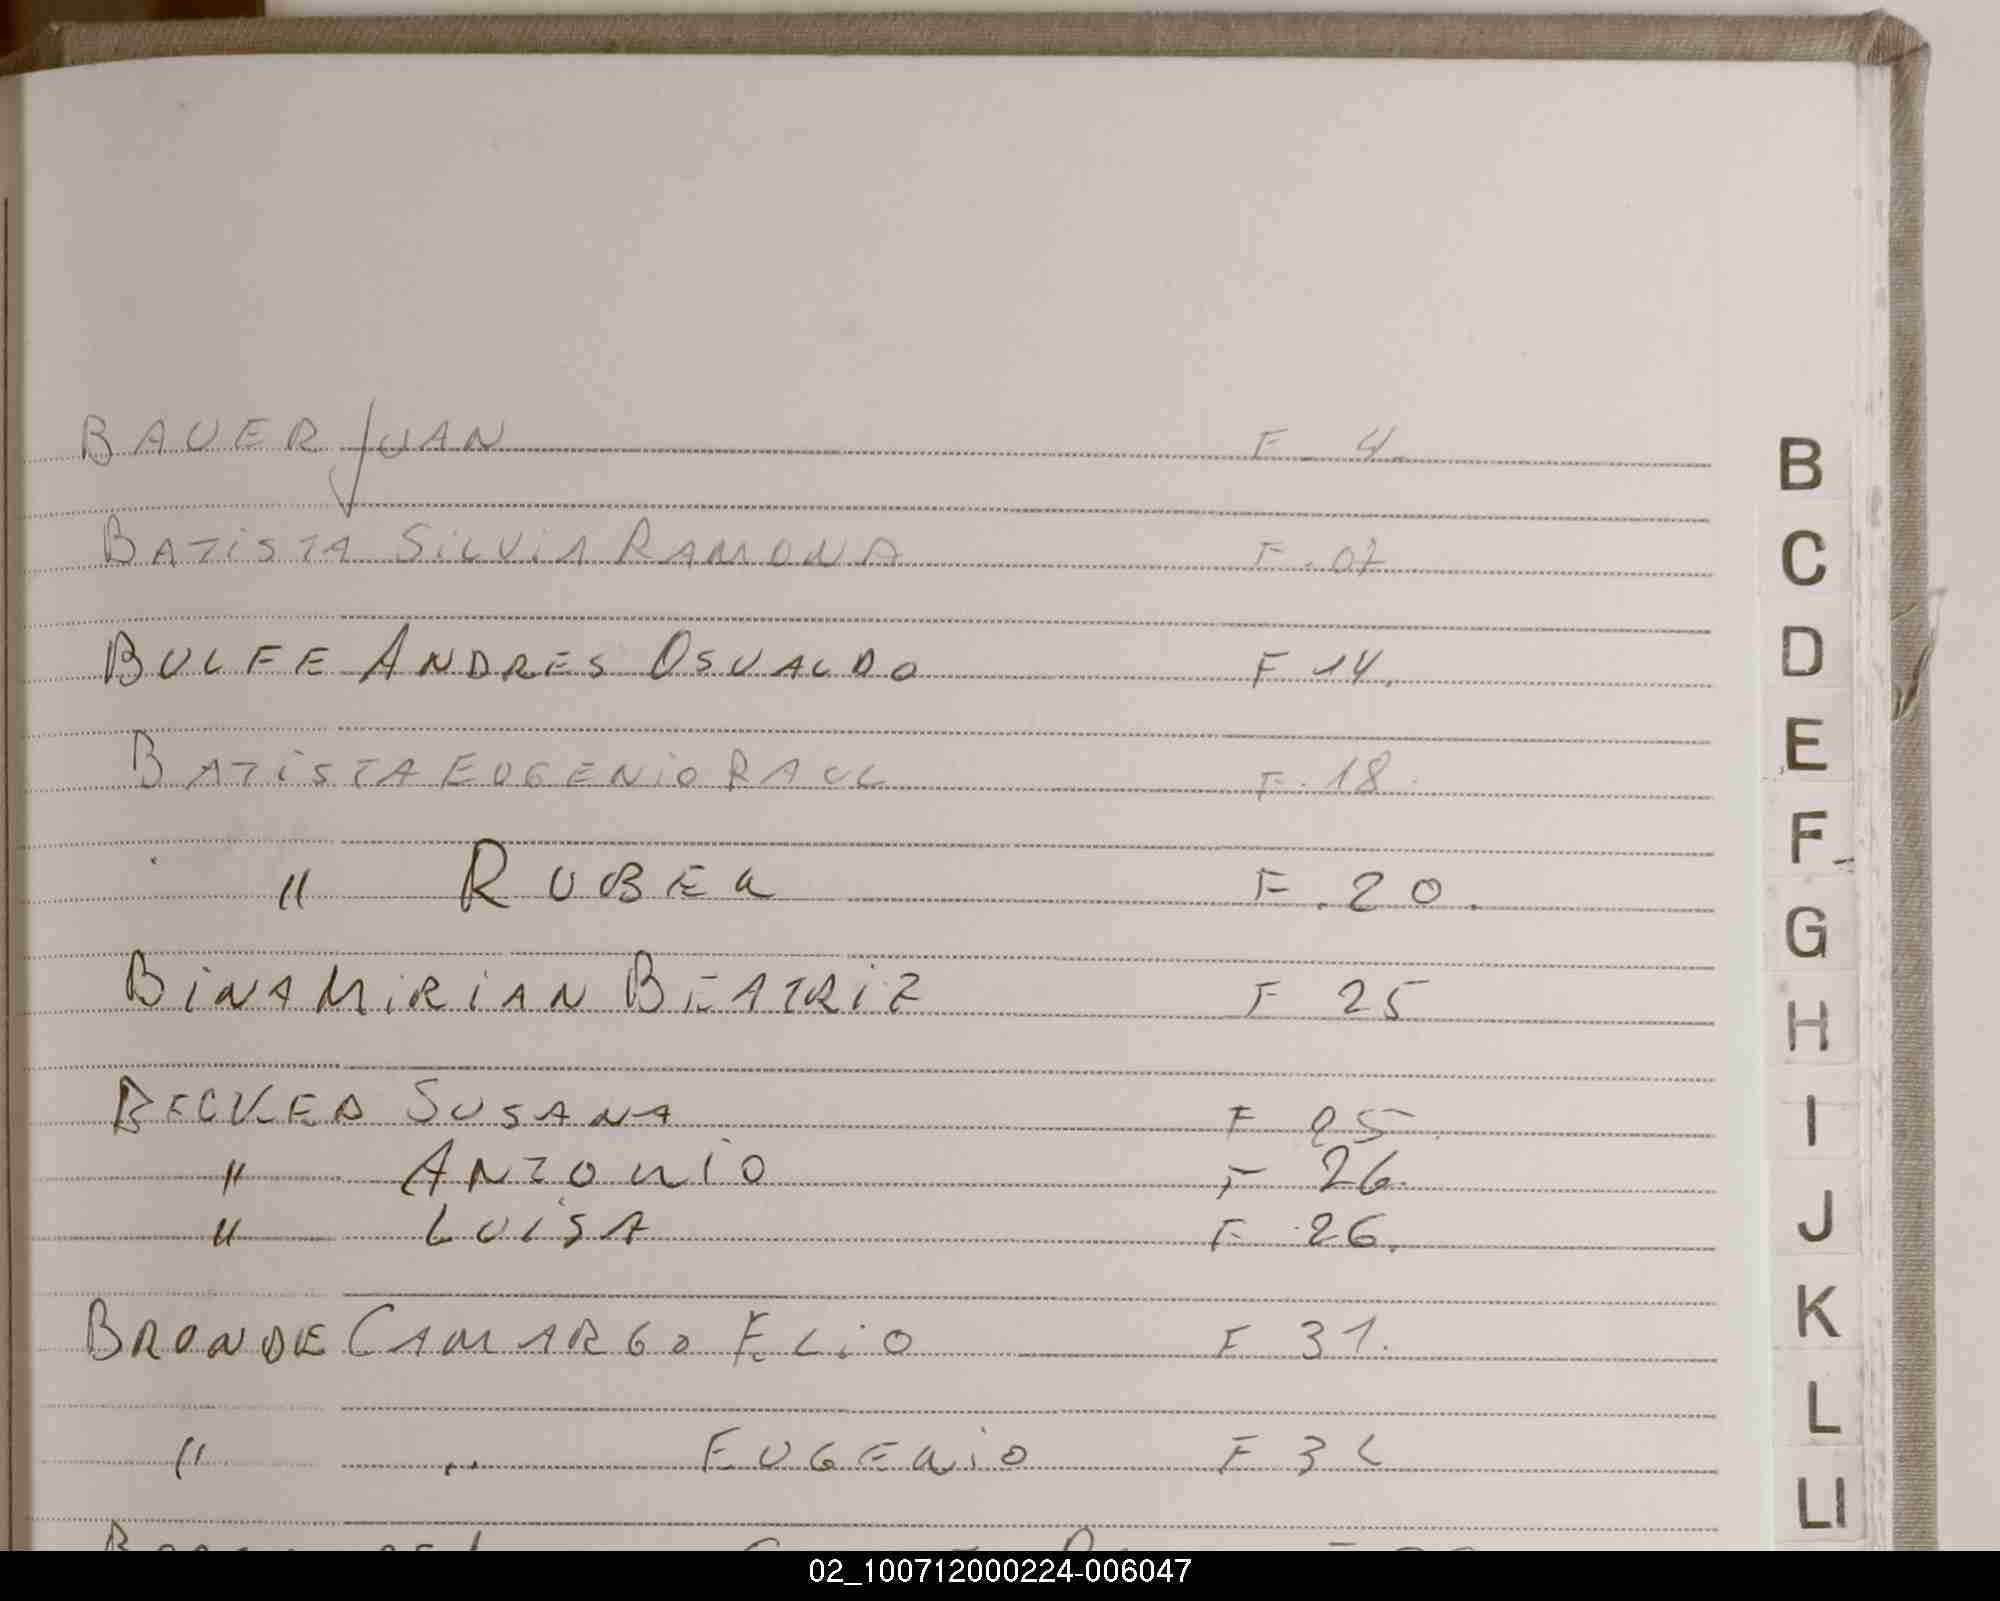 BAUER JUAN F. 4.
BATISTA SILVIA RAMONA F. 07
BULFE ANDRES OSVALDO F 14.
BATISTA EUGENIO RAUL F. 18.
" RUBEN F. 20.
BINA MIRIAN BEATRIZ F 25
BECKER SUSANA F 25.
" ANTONIO F 26.
" LUISA F 26.
BRONDE CAMARGO ELIO F 31.
" " EUGENIO F 3
B
C
D
E
F
G
H
I
J
K
L
Ll
02_100712000224-006047